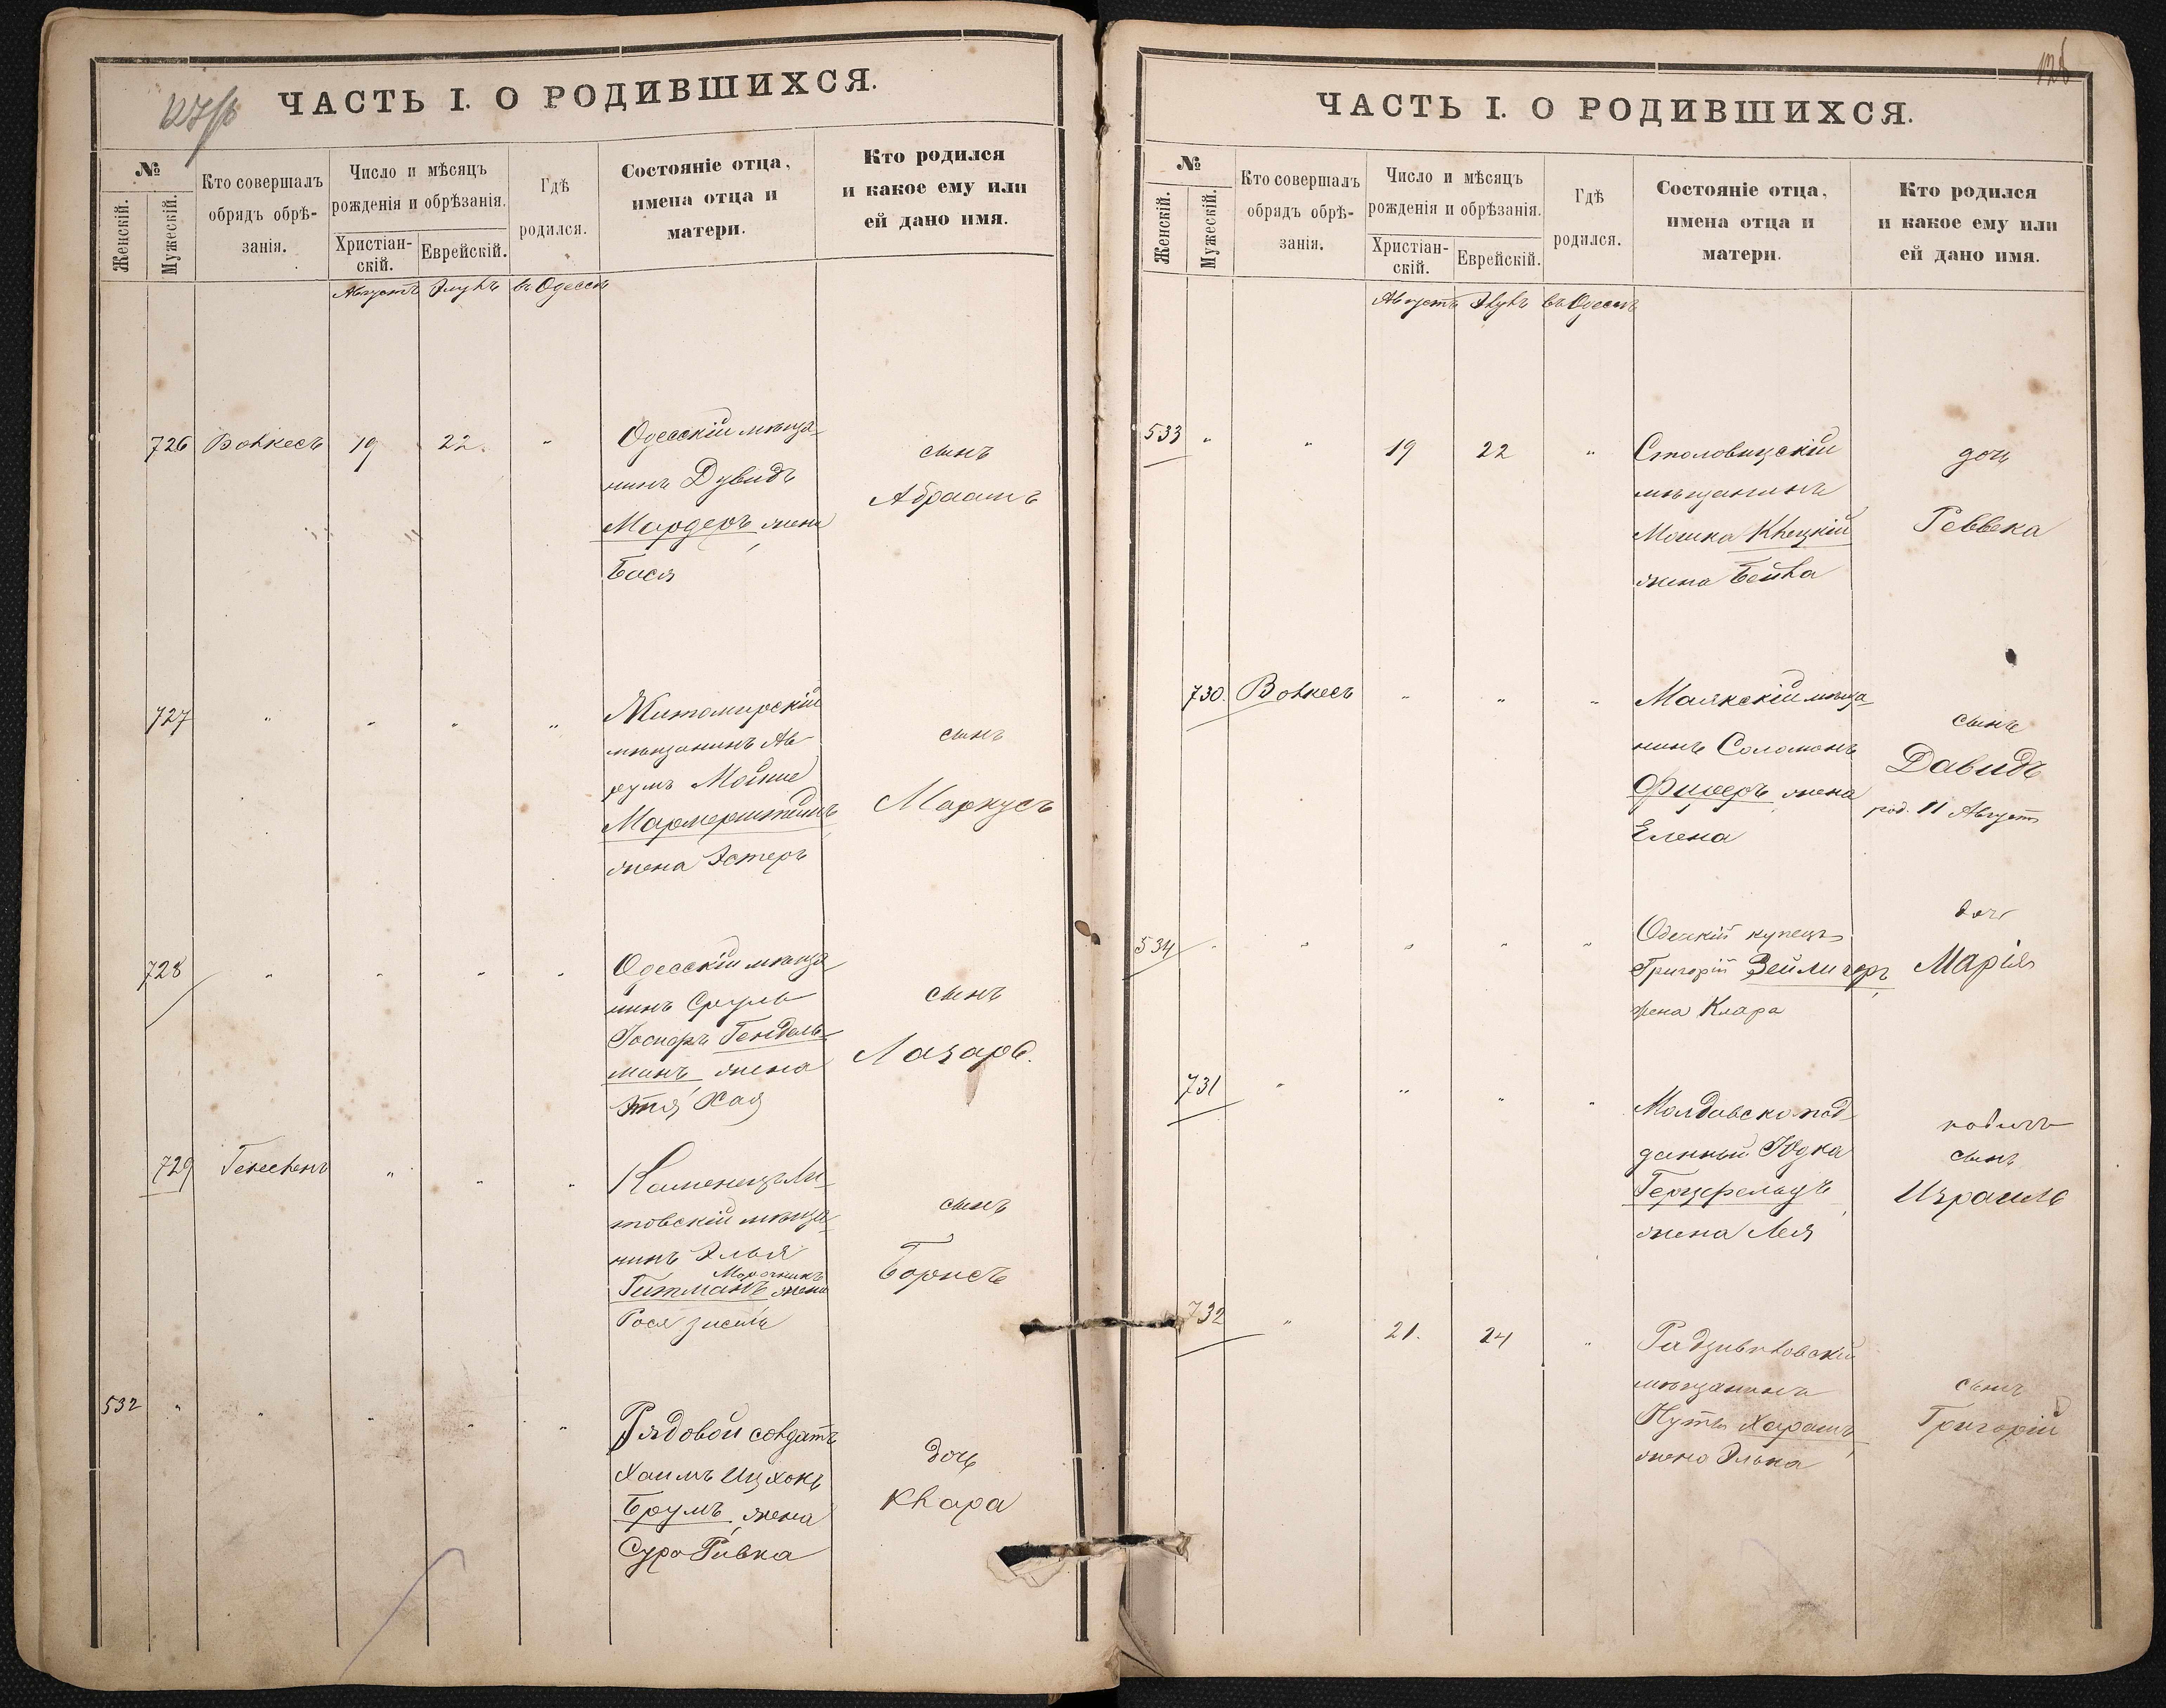 127об
ЧАСТЬ I. О РОДИВШИХСЯ.
№
Женскій.
Мужескій.
Кто совершалъ
обрядъ обрѣ-
занія.
Число и мѣсяцъ
рожденія и обрѣзанія.
Христіан-
скій.
Еврейскій.
Гдѣ
родился.
Состояніе отца,
имена отца и
матери.
Кто родился
и какое ему или
ей дано имя.
Августъ Элулъ въ Одессѣ
726 Волкесъ 19 22. „
Одесскій мѣща-
нинъ Дувидъ
Мардеръ жена
Бася
сынъ
Абраамъ
727 „ „ „ „
Житомирскій
мѣщанинъ Ав-
румъ Мойше
Мармерштейнъ
жена Эстеръ
сынъ
Маркусъ
728 „ „ „ „
Одесскій мѣща-
нинъ Сруль
Гендель-
манъ жена
Этя Хая
сынъ
Лазарь.
729 „ „ „
Каменецъ Ли-
товскій мѣща-
нинъ Элья
Гитманъ жена
Рося
сынъ
Борисъ
532 „ „ „ „ „
Рядовой солдатъ
Хаимъ Ицхокъ
Брумъ жена
Сура Ривка
дочь
Клара
128
ЧАСТЬ I. О РОДИВШИХСЯ.
№
Женскій.
Мужескій.
Кто совершалъ
обрядъ обрѣ-
занія.
Число и мѣсяцъ
рожденія и обрѣзанія.
Христіан-
скій.
Еврейскій.
Гдѣ
родился.
Состояніе отца,
имена отца и
матери.
Кто родился
и какое ему или
ей дано имя.
Августъ Элулъ въ Одессѣ
533 „ „ 19 22 „
Столовицскій
мѣщанинъ
Мошка Клецкій
жена Бейла
дочь
Реввека
730. Волкесъ „ „ „
Маякскій мѣща-
нинъ Соломонъ
Фишеръ жена
Елена
сынъ
Давидъ
род. 11 Августа
534 „ „ „ „ „
Одескій купецъ
Григорій Зейлигеръ
жена Клара
дочь
Марія
731 „ „ „ „
Молдавско под-
данный Юдка
Герцфельдъ
жена Лея
сынъ
Израиль
732 „ 21. 24 „
Радзивиловскій
мѣщанинъ
Нутъ Харашъ
жена Элька
сынъ
Григорій